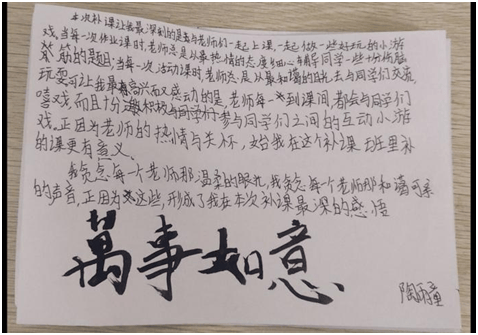 本次补课让我最深刻的是与老师们一起上课,一起做一些好玩的小游
戏,当每一次作业课时,老师总是以最热情的态度细心辅导同学一些伤脑
筋的题目;当每一次活动课时,老师总是从最和蔼的目光去与同学们交流
玩耍,可让我最高兴和又感动的是,老师每一到课间,都会与同学们
嘻戏,而且十分积极与同学们参与同学们之间的互动小游
戏。正因为老师的热情与关怀,始我在这个补课班里补
的课更有意义。
我贪恋每一个老师那温柔的眼光,我贪恋每一个老师那和蔼可亲
的声音,正因为这些,形成了我在本次补课最深的感悟
萬事如意
陶雨童